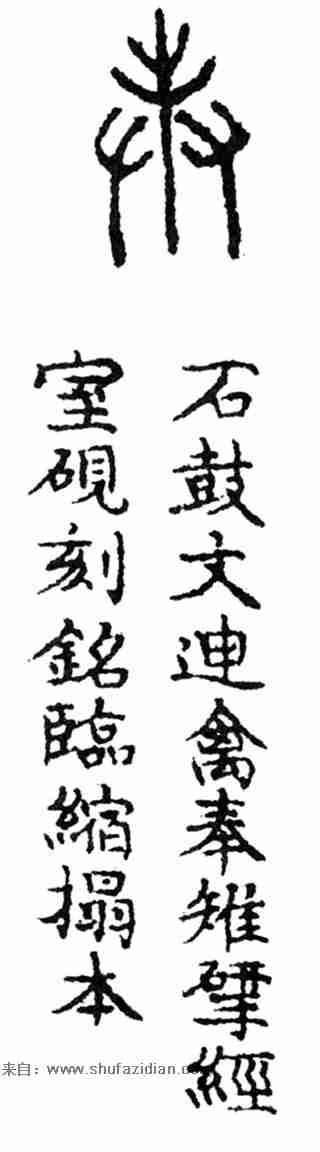 奉
石鼓文迧禽奉雉揅經
室硯刻銘臨縮搨本
来自：www.shufazidian.co